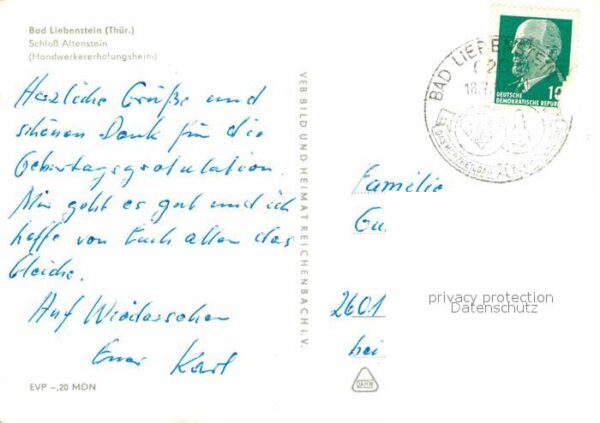 Bad Liebenstein (Thür.)
Schloß Altenstein
(Handwerkererholungsheim)
Herzliche Grüße und
schönen Dank für die
Geburtagsgratulation.
Mir geht es gut und ich
hoffe von Euch allen das
Gleiche.
Auf Wiedersehen
Euer Karl
EVP –,20 MDN
VEB BILD UND HEIMAT REICHENBACH I. V.
BAD LIEBENSTEIN
DEUTSCHE
DEMOKRATISCHE REPUB
10
Familie
Gu
2601
bei
privacy protection
Datenschutz